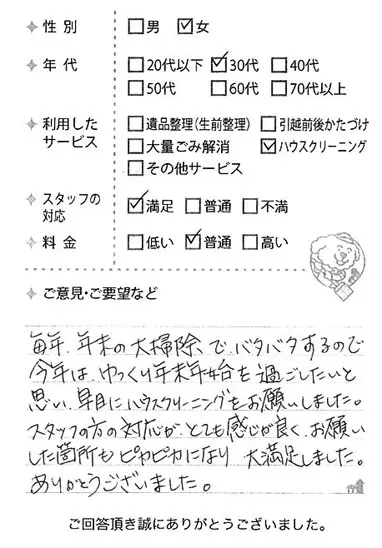 性別 □男 ☑女
年代 □20代以下 ☑30代 □40代
□50代 □60代 □70代以上
利用したサービス □遺品整理(生前整理) □引越前後かたづけ
□大量ごみ解消 ☑ハウスクリーニング
□その他サービス
スタッフの対応 ☑満足 □普通 □不満
料金 □低い ☑普通 □高い
ご意見・ご要望など
毎年、年末の大掃除、で、バタバタするので
今年は、ゆっくり年末年始を過ごしたいと
思い、早目にハウスクリーニングをお願いしました。
スタッフの方の対応が、とても感じが良く、お願い
した箇所もピカピカになり、大満足しました。
ありがとうございました。
ご回答頂き誠にありがとうございました。